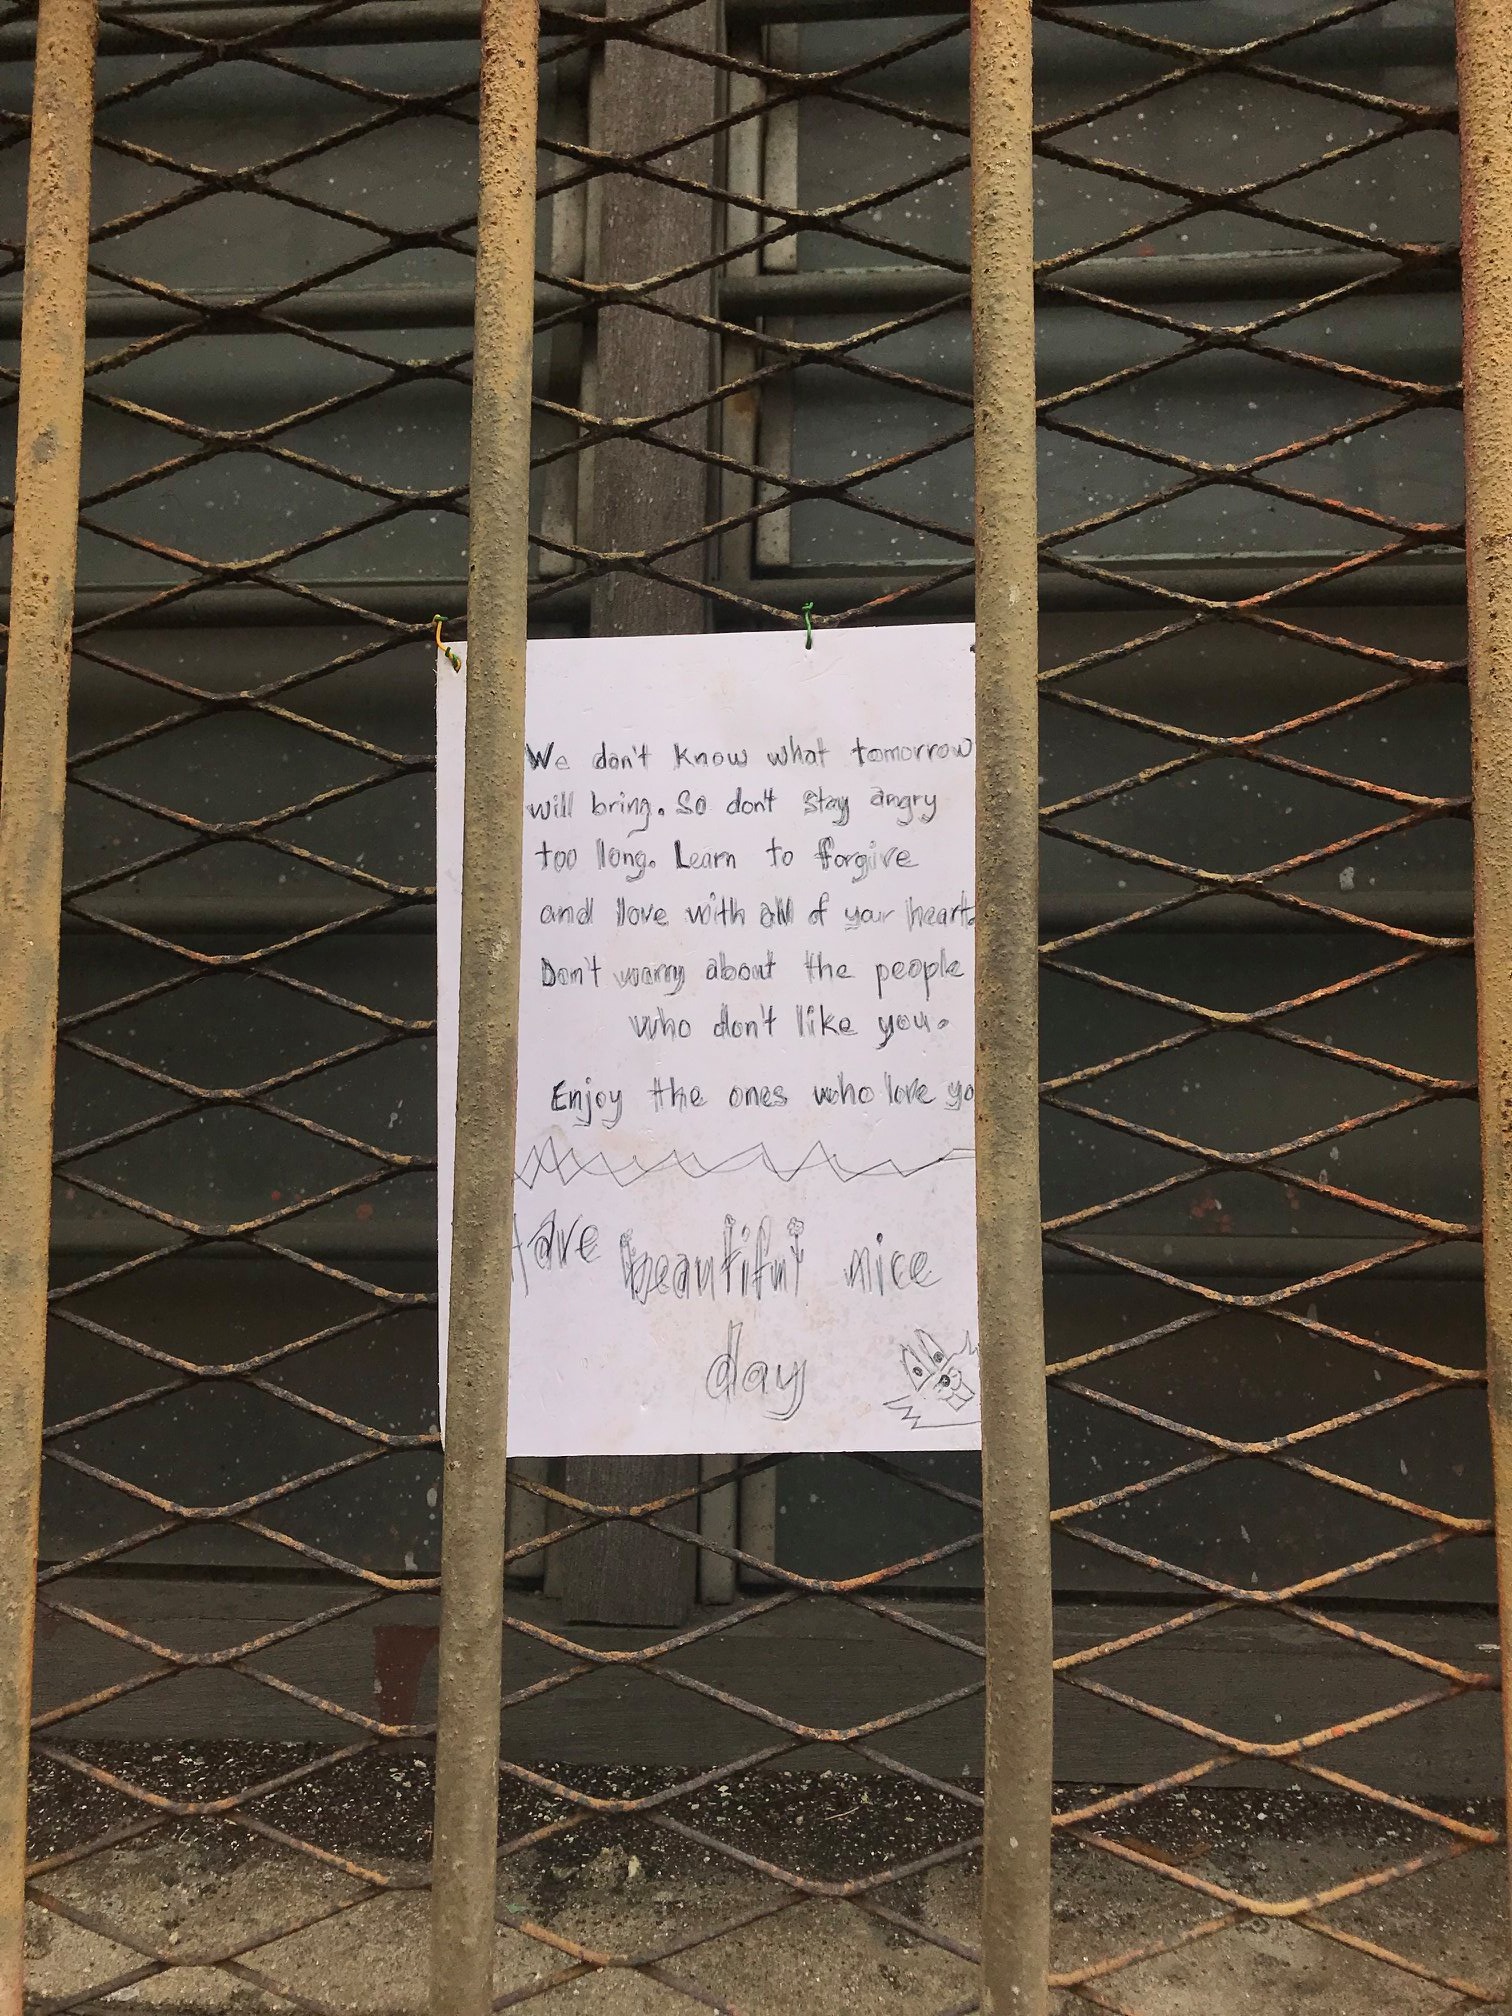 We don't know what tomorrow
will bring. So don't stay angry
too long. Learn to forgive
and love with all of your heart.
Don't worry about the people
who don't like you.
Enjoy the ones who love yo
Have beautiful nice
day